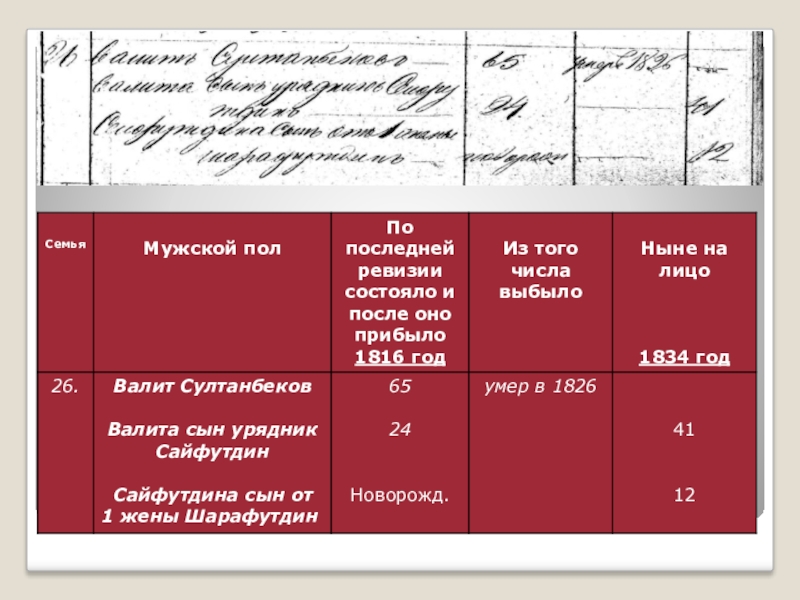 26 Валитъ Султанбековъ 65 умеръ 1826
Валита сынъ урядникъ Сайфу
тдинъ 24. 41
Сайфутдина сынъ от 1 жены
Шарафутдинъ новорожд 12
Семья Мужской пол По последней ревизии состояло и после оно прибыло 1816 год Из того числа выбыло Ныне на лицо 1834 год
26. Валит Султанбеков 65 умер в 1826
Валита сын урядник Сайфутдин 24 41
Сайфутдина сын от 1 жены Шарафутдин Новорожд. 12